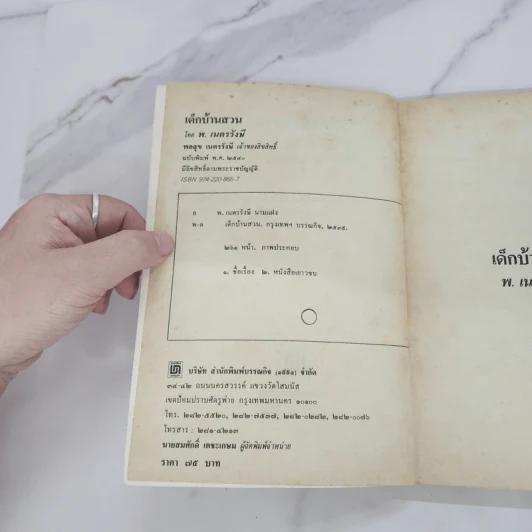 เด็กบ้านสวน
โดย พ. เนตรรังษี
พอสุข เนตรรังษี เจ้าของลิขสิทธิ์
ฉบับพิมพ์ พ.ศ. ๒๕๔๐
มีลิขสิทธิ์ตามพระราชบัญญัติ
ISBN 974-220-865-7
พ. เนตรรังษี นามแฝง
เด็กบ้านสวน. กรุงเทพฯ บรรณกิจ, ๒๕๓๕.
๒๖๑ หน้า. ภาพประกอบ
๑. ชื่อเรื่อง ๒. หนังสือเยาวชน
บริษัท สำนักพิมพ์บรรณกิจ (๑๙๙๑) จำกัด
๓๔-๔๒ ถนนนครสวรรค์ แขวงวัดโสมนัส
เขตป้อมปราบศัตรูพ่าย กรุงเทพมหานคร ๑๐๑๐๐
โทร. ๒๘๒-๕๕๒๐, ๒๘๒-๗๕๓๗, ๒๘๒-๐๒๘๒, ๒๘๒-๐๐๗๖
โทรสาร : ๒๘๑-๔๒๑๓
นายสมศักดิ์ เตชะเกษม ผู้จัดพิมพ์จำหน่าย
ราคา ๗๕ บาท
เด็กบ้า
พ. เน